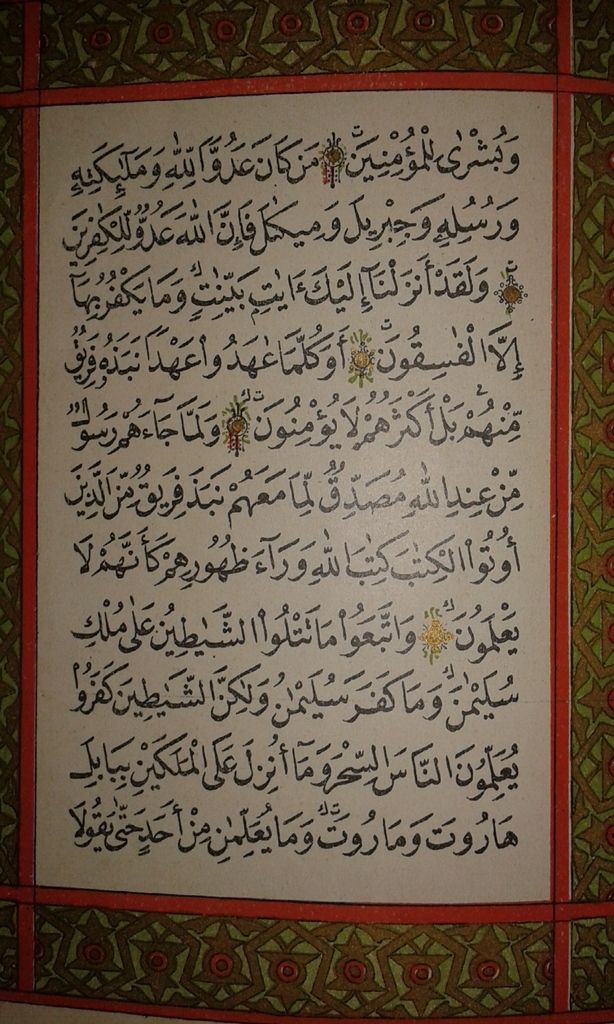 وَبُشْرٰى لِلْمُؤْمِنِينَ مَن كَانَ عَدُوًّا لِّلّٰهِ وَمَلَٰٓئِكَتِهِ
وَرُسُلِهِ وَجِبْرِيلَ وَمِيكٰلَ فَإِنَّ اللّٰهَ عَدُوٌّ لِّلْكٰفِرِينَ
وَلَقَدْ أَنزَلْنَآ إِلَيْكَ ءَايٰتٍ بَيِّنٰتٍ وَمَا يَكْفُرُ بِهَآ
إِلَّا الْفٰسِقُونَ أَوَكُلَّمَا عٰهَدُوا عَهْدًا نَبَذَهُ فَرِيقٌ
مِّنْهُمْ بَلْ أَكْثَرُهُمْ لَا يُؤْمِنُونَ وَلَمَّا جَآءَهُمْ رَسُولٌ
مِّنْ عِندِ اللّٰهِ مُصَدِّقٌ لِّمَا مَعَهُمْ نَبَذَ فَرِيقٌ مِّنَ الَّذِينَ
أُوتُوا الْكِتٰبَ كِتٰبَ اللّٰهِ وَرَآءَ ظُهُورِهِمْ كَأَنَّهُمْ لَا
يَعْلَمُونَ وَاتَّبَعُوا مَا تَتْلُوا الشَّيٰطِينُ عَلٰى مُلْكِ
سُلَيْمٰنَ وَمَا كَفَرَ سُلَيْمٰنُ وَلٰكِنَّ الشَّيٰطِينَ كَفَرُوا
يُعَلِّمُونَ النَّاسَ السِّحْرَ وَمَآ أُنزِلَ عَلَى الْمَلَكَيْنِ بِبَابِلَ
هَارُوتَ وَمَارُوتَ وَمَا يُعَلِّمٰنِ مِنْ أَحَدٍ حَتّٰى يَقُولَا